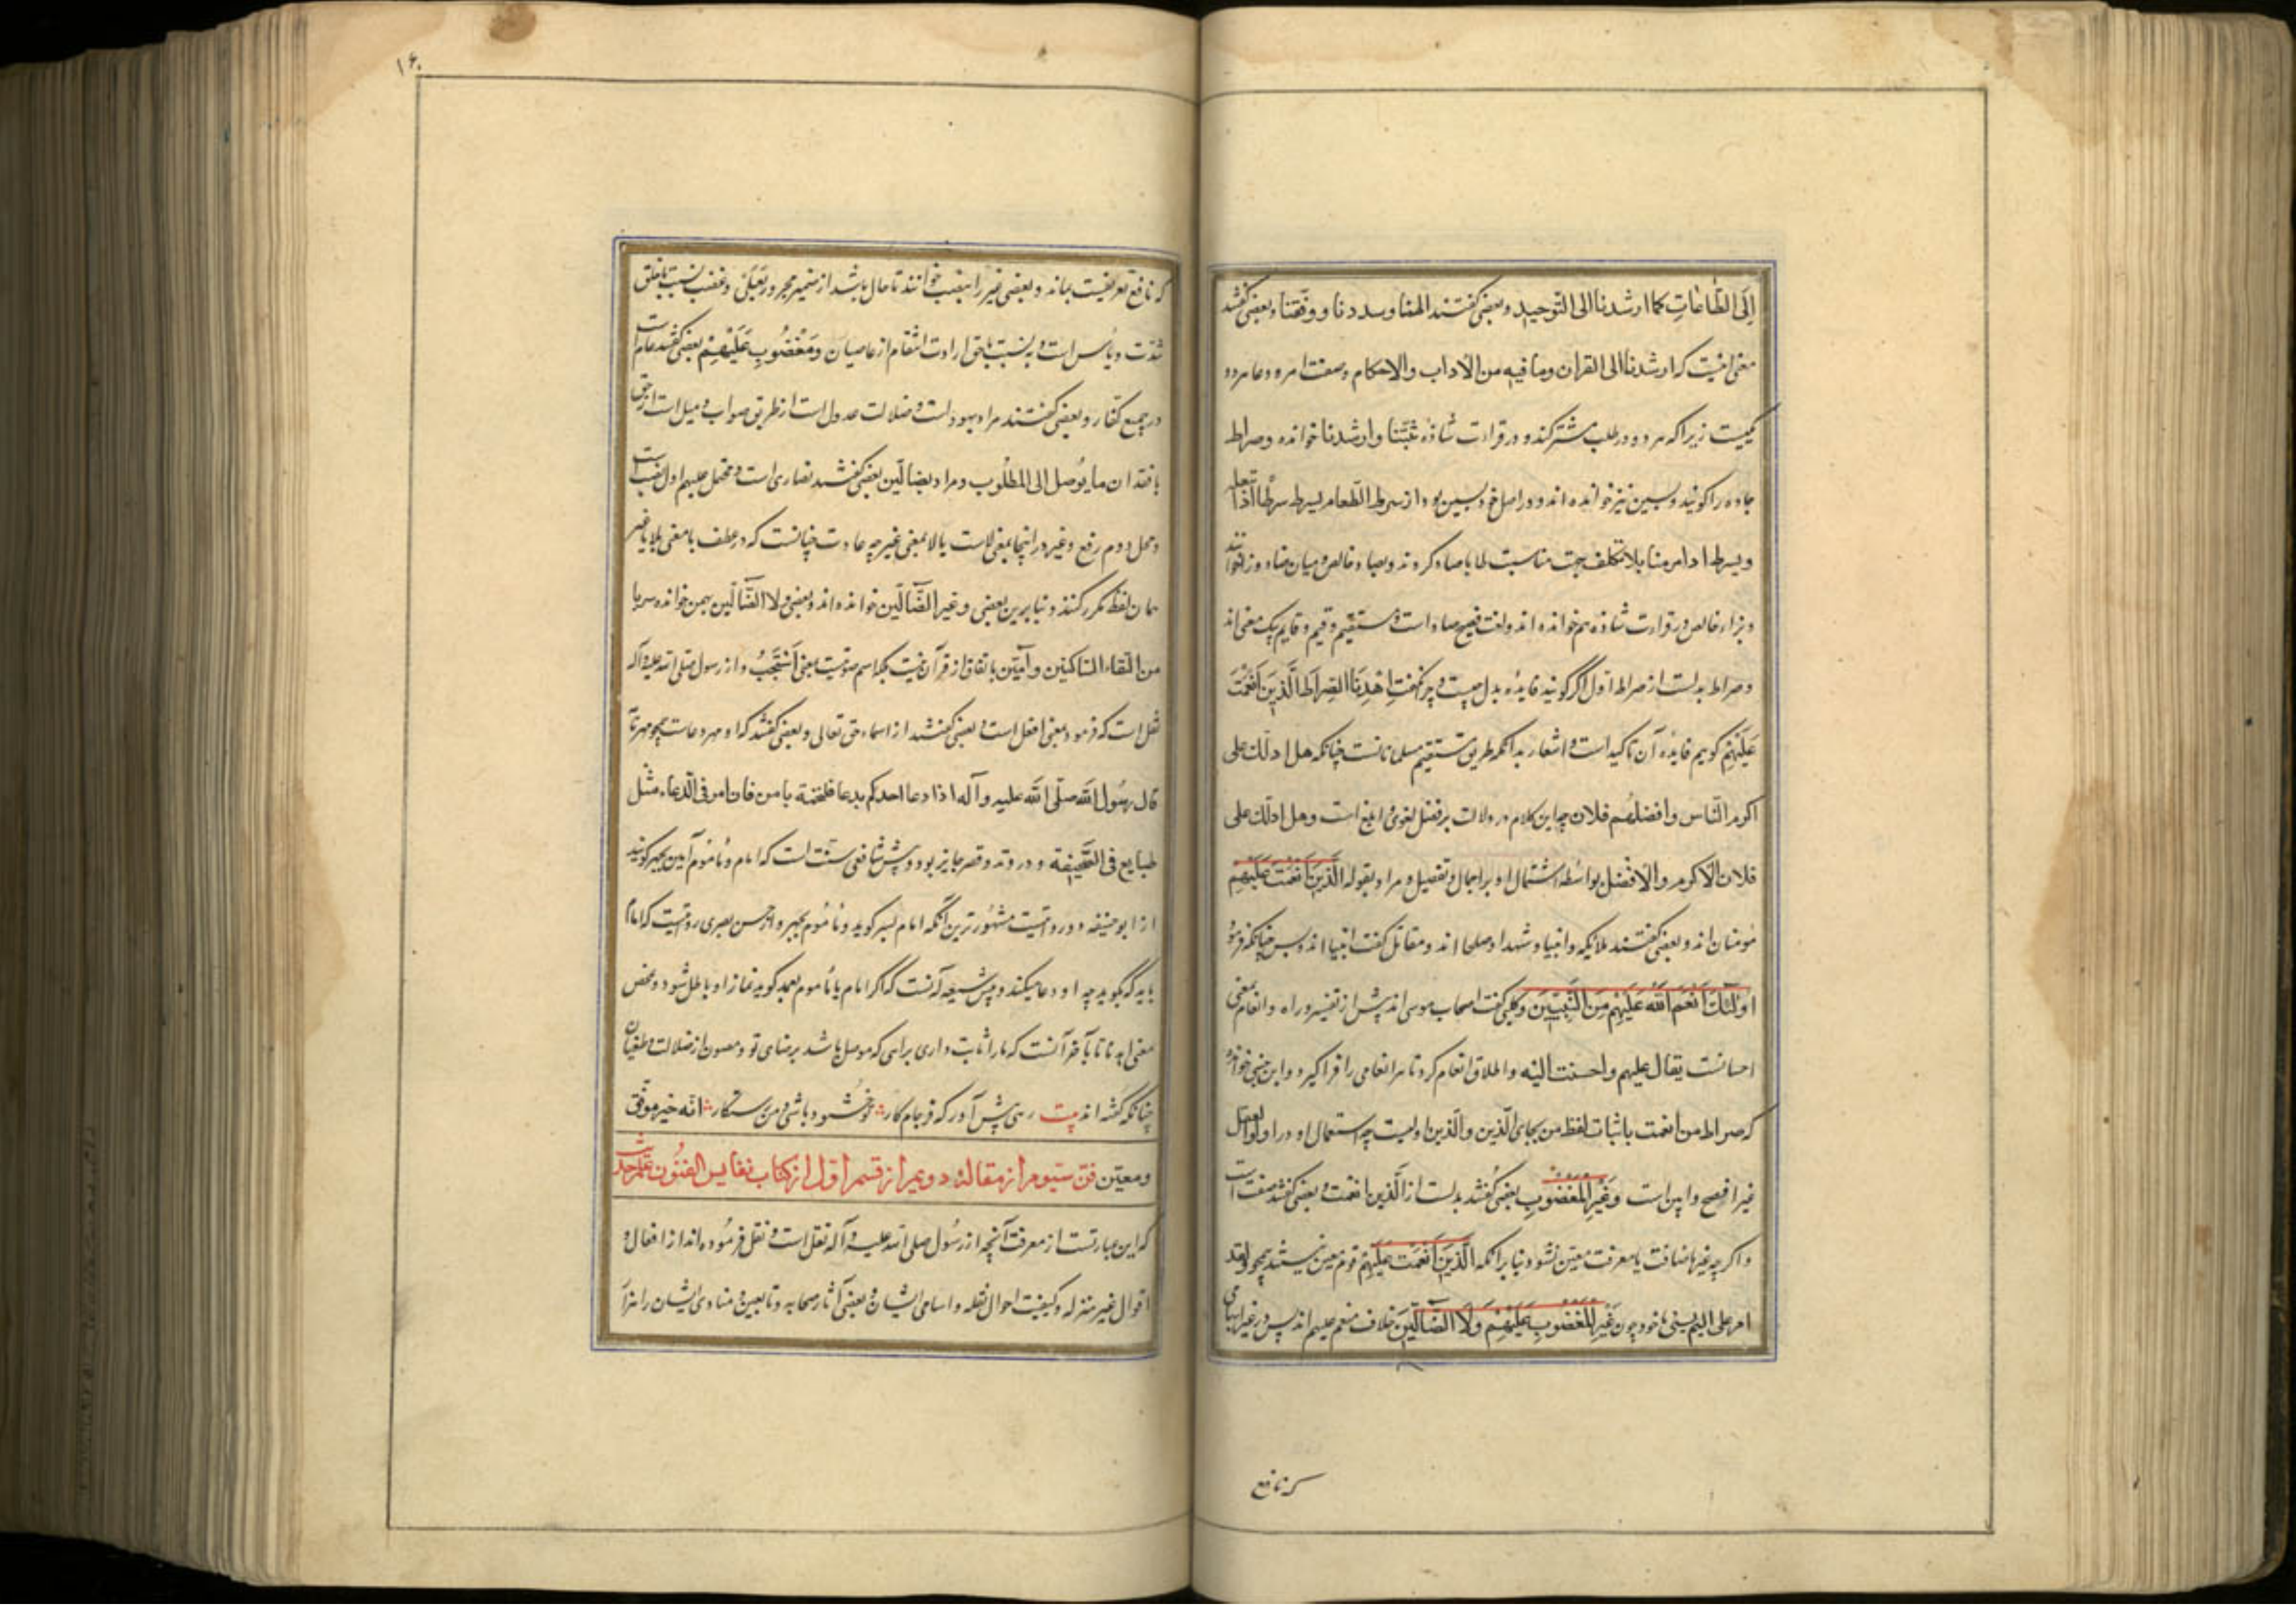 اِلَی الطّاعاتِ کما ارشدنا الی التّوحید و بعضی گفتند الهمنا و سددنا و وفّقنا و بعضی گفتند
معنی اینست که ارشدنا الی القران وما فیه من الاداب والاحکام وصفت امر و دعا هر دو
یکیست زیرا که هر دو در طلب مشترکند و در قراءت شاذه ثبّتنا و ارشدنا خوانده و صراط
جاده را گویند و بسین نیز خوانده اند و در اصل خود بسین بود از سرط الطّعام یسرط سرطًا اذا
ویسرط بلا تکلف جهت مناسبت طا با صاد کردند و بصاد خالص و میان صاد و زا خوانند
و بزاء خالص در قراءت شاذه هم خوانده اند و لغت فصیح صاد است و مستقیم و قیم و قایم بیک معنی اند
و صراط بدلست از صراط اول اگر گویند فایدهٔ بدل چیست و چرا نگفت اِهْدِنَا الصِراطَ الَّذینَ اَنعَمْتَ
عَلَیْهِمْ گوییم فایدهٔ آن تاکید است و اشعار بدانکه طریق مستقیم مسلمانانست چنانکه هل ادلّک علی
اکرم النّاس وافضلهُم فلان چه این کلام در دلالت بر فضل لغوی ابلغ است و هل ادلّک علی
فلان الاکرم والافضل بواسطهٔ اشتمال او بر اجمال و تفصیل و مراد بقوله الَّذینَ اَنعَمْتَ عَلَیْهِمْ
مؤمنان اند و بعضی گفتند ملایکه و انبیا و شهدا و صلحا اند و مقاتل گفت انبیا اند و بس چنانکه فرمود
اولئک اَنْعَمَ اللّهُ عَلَیهِمْ مِنَ النَّبِیّینَ و کلبی گفت اصحاب موسی اند پیش از تغییر و راه و انعام بمعنی
احسانست یقال علیهم واحسنت الیه و اطلاق انعام کرد تا هر انعامی را فراگیرد و ابن خوانده
که صراط من انعمت باثبات لفظ من بجای الّذین والّذین اولیست چه استعمال او در
غیر افصح و این است وَغَیْرِ المَغْضُوبِ بعضی گفتند بدلست از الّذین انعمت و بعضی گفتند صفت است
و اگر چه غیر باضافت با معرفت معین نشود بنابر آنکه الَّذینَ اَنْعَمْتَ عَلَیهِمْ قوم معین نیستند همچو لقد
امر علی الیم یسبنی یا خود چون غَیْرِ الْمَغْضُوبِ عَلَیْهِمْ وَلَا الضّالّینَ خلاف منعم علیهم اند پس در غیر
که نافع
۱۶۰
که نافع تعریفست بماند و بعضی غیر را بنصب خوانند تا حال باشد از ضمیر مجرور بعَلی و غضب نسبت با خلق
شدّت و باس است و به نسبت با حق ارادت انتقام از عاصیان ومَغْضُوبِ عَلَیْهِمْ بعضی گفتند عام است
در جمیع کفار و بعضی گفتند مراد یهود است و ضلالت عدول است از طریق صواب و میل است از حق
با فقدان ما یوصل الی المطلوب و مراد بضالّین بعضی گفتند نصاری است و محل علیهم اول نصب است
و محل دوم رفع و غیر در اینجا بمعنی لاست یا لا بمعنی غیر چه عادت چنانست که در عطف با معنی بلا یا غیر
همان لفظ مکرر کنند و بنابرین بعضی وغیر الضّالّین خوانده اند و بعضی ولا الضّالّین بهمزه خوانده
من التقاء الساکنین و آمین باتفاق از قرآن نیست بلکه اسم صوتیست بمعنی اَسْتَجِبْ و از رسول صلی الله علیه و آله
نقل است که فرمود بمعنی افعل است و بعضی گفتند از اسماء حق تعالی و بعضی گفتند که او مهر دعاست همچو مهر نامه
قال رسُول الله صلّی الله علیه وآله اذا دعا احدکم بدعا فلختمه بامین فان امین فی الدّعاء مثل
طبایع فی الصّحیفة و در و مد و قصر جایز بود و پیش شافعی سنّت است که امام و مأموم آمین بجهر گویند
از ابو حنیفه دو روایتست مشهورترین آنکه امام بسر گوید و مأموم بجهر و از حسن بصری روایتیست که امام
باید که نگوید چه او دعا میکند و پیش شیعه آنست که اگر امام یا مأموم بعمد گوید نماز او باطل شود و محض
معنی اهدنا تا بآخر آنست که ما را ثابت داری براهی که موصل باشد برضای تو و مصون از ضلالت و طغیان
چنانکه گفته اند بیت رهی پیش آور که فرجام کار تو خشنود باشی و من رستگار انّه خیر موفّق
ومعین فنّ سیّوم از مقالهٔ دویم از قسم اوّل از کتاب نفایس الفنُون علم حدیث
که این عبارتست از معرفت آنچه از رسُول صلی الله علیه و آله نقل است و نقل فرموده اند از افعال و
اقوال غیر منزله و کیفیت احوال نقله و اسامی ایشان و بعضی آثار صحابه و تابعین و منادی ایشان را